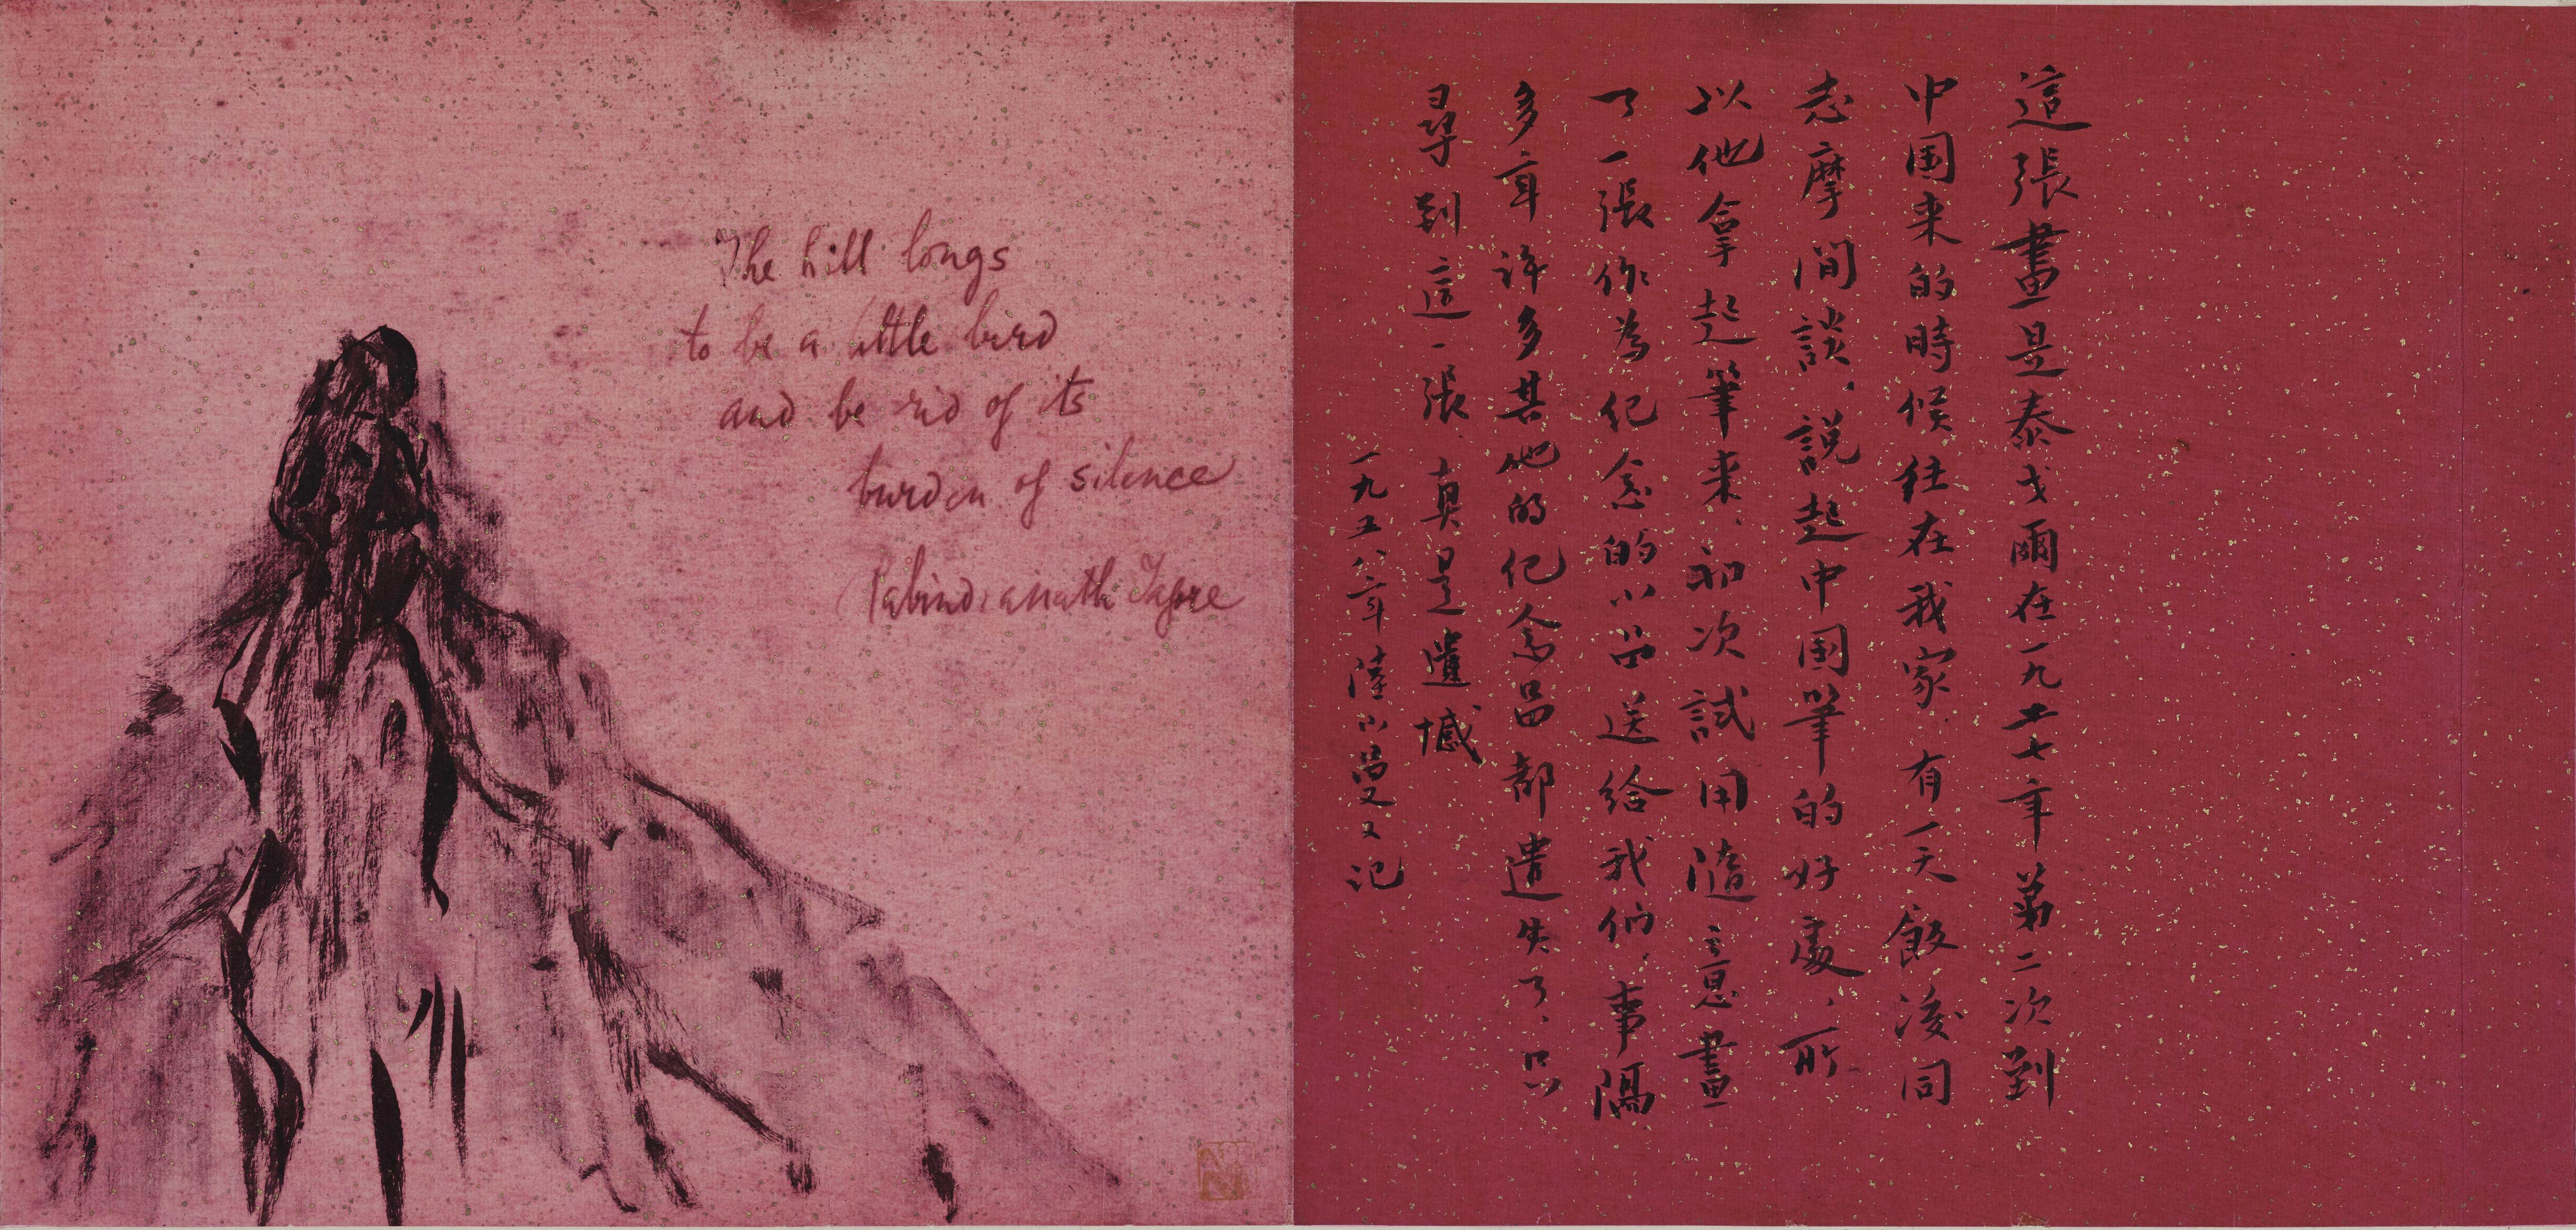 The hill longs
to be a little bird
and be rid of its
burden of silence
Rabindranath Tagore
這張畫是泰戈爾在一九二七年第二次到
中国来的時候住在我家有一天飯後同
志摩间談、說起中国筆的好處、所
以他拿起筆来、初次試用隨意畫
了一張作為纪念的小品送给我们、事隔
多年许多其他的纪念品都遺失了、只
尋到這一張真是遺憾
一九五八年陸小曼又记